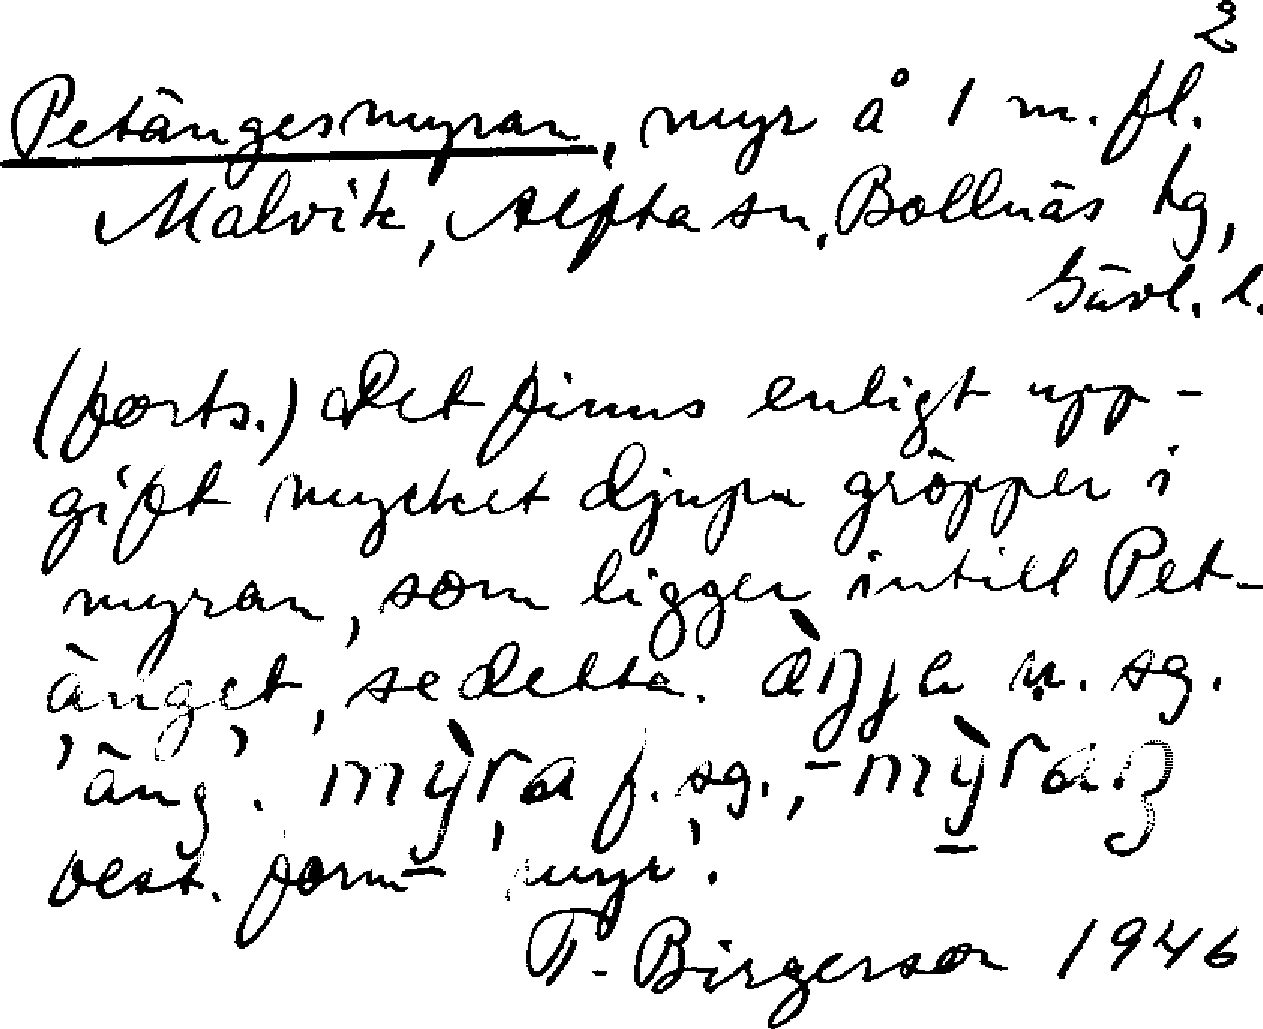 2
Petängesmyran, myr å 1 m. fl.
Malvik, Alfta sn, Bollnäs tg,
Gävl. l.
(forts.) Det finns enligt upp-
gift mycket djupa gröpper i
myran, som ligger intill Pet-
änget, se detta. àŋja n. sg.
'äng'. mỳra f. sg., -mỳraŋ
best. form 'myr'.
F. Birgerson 1946